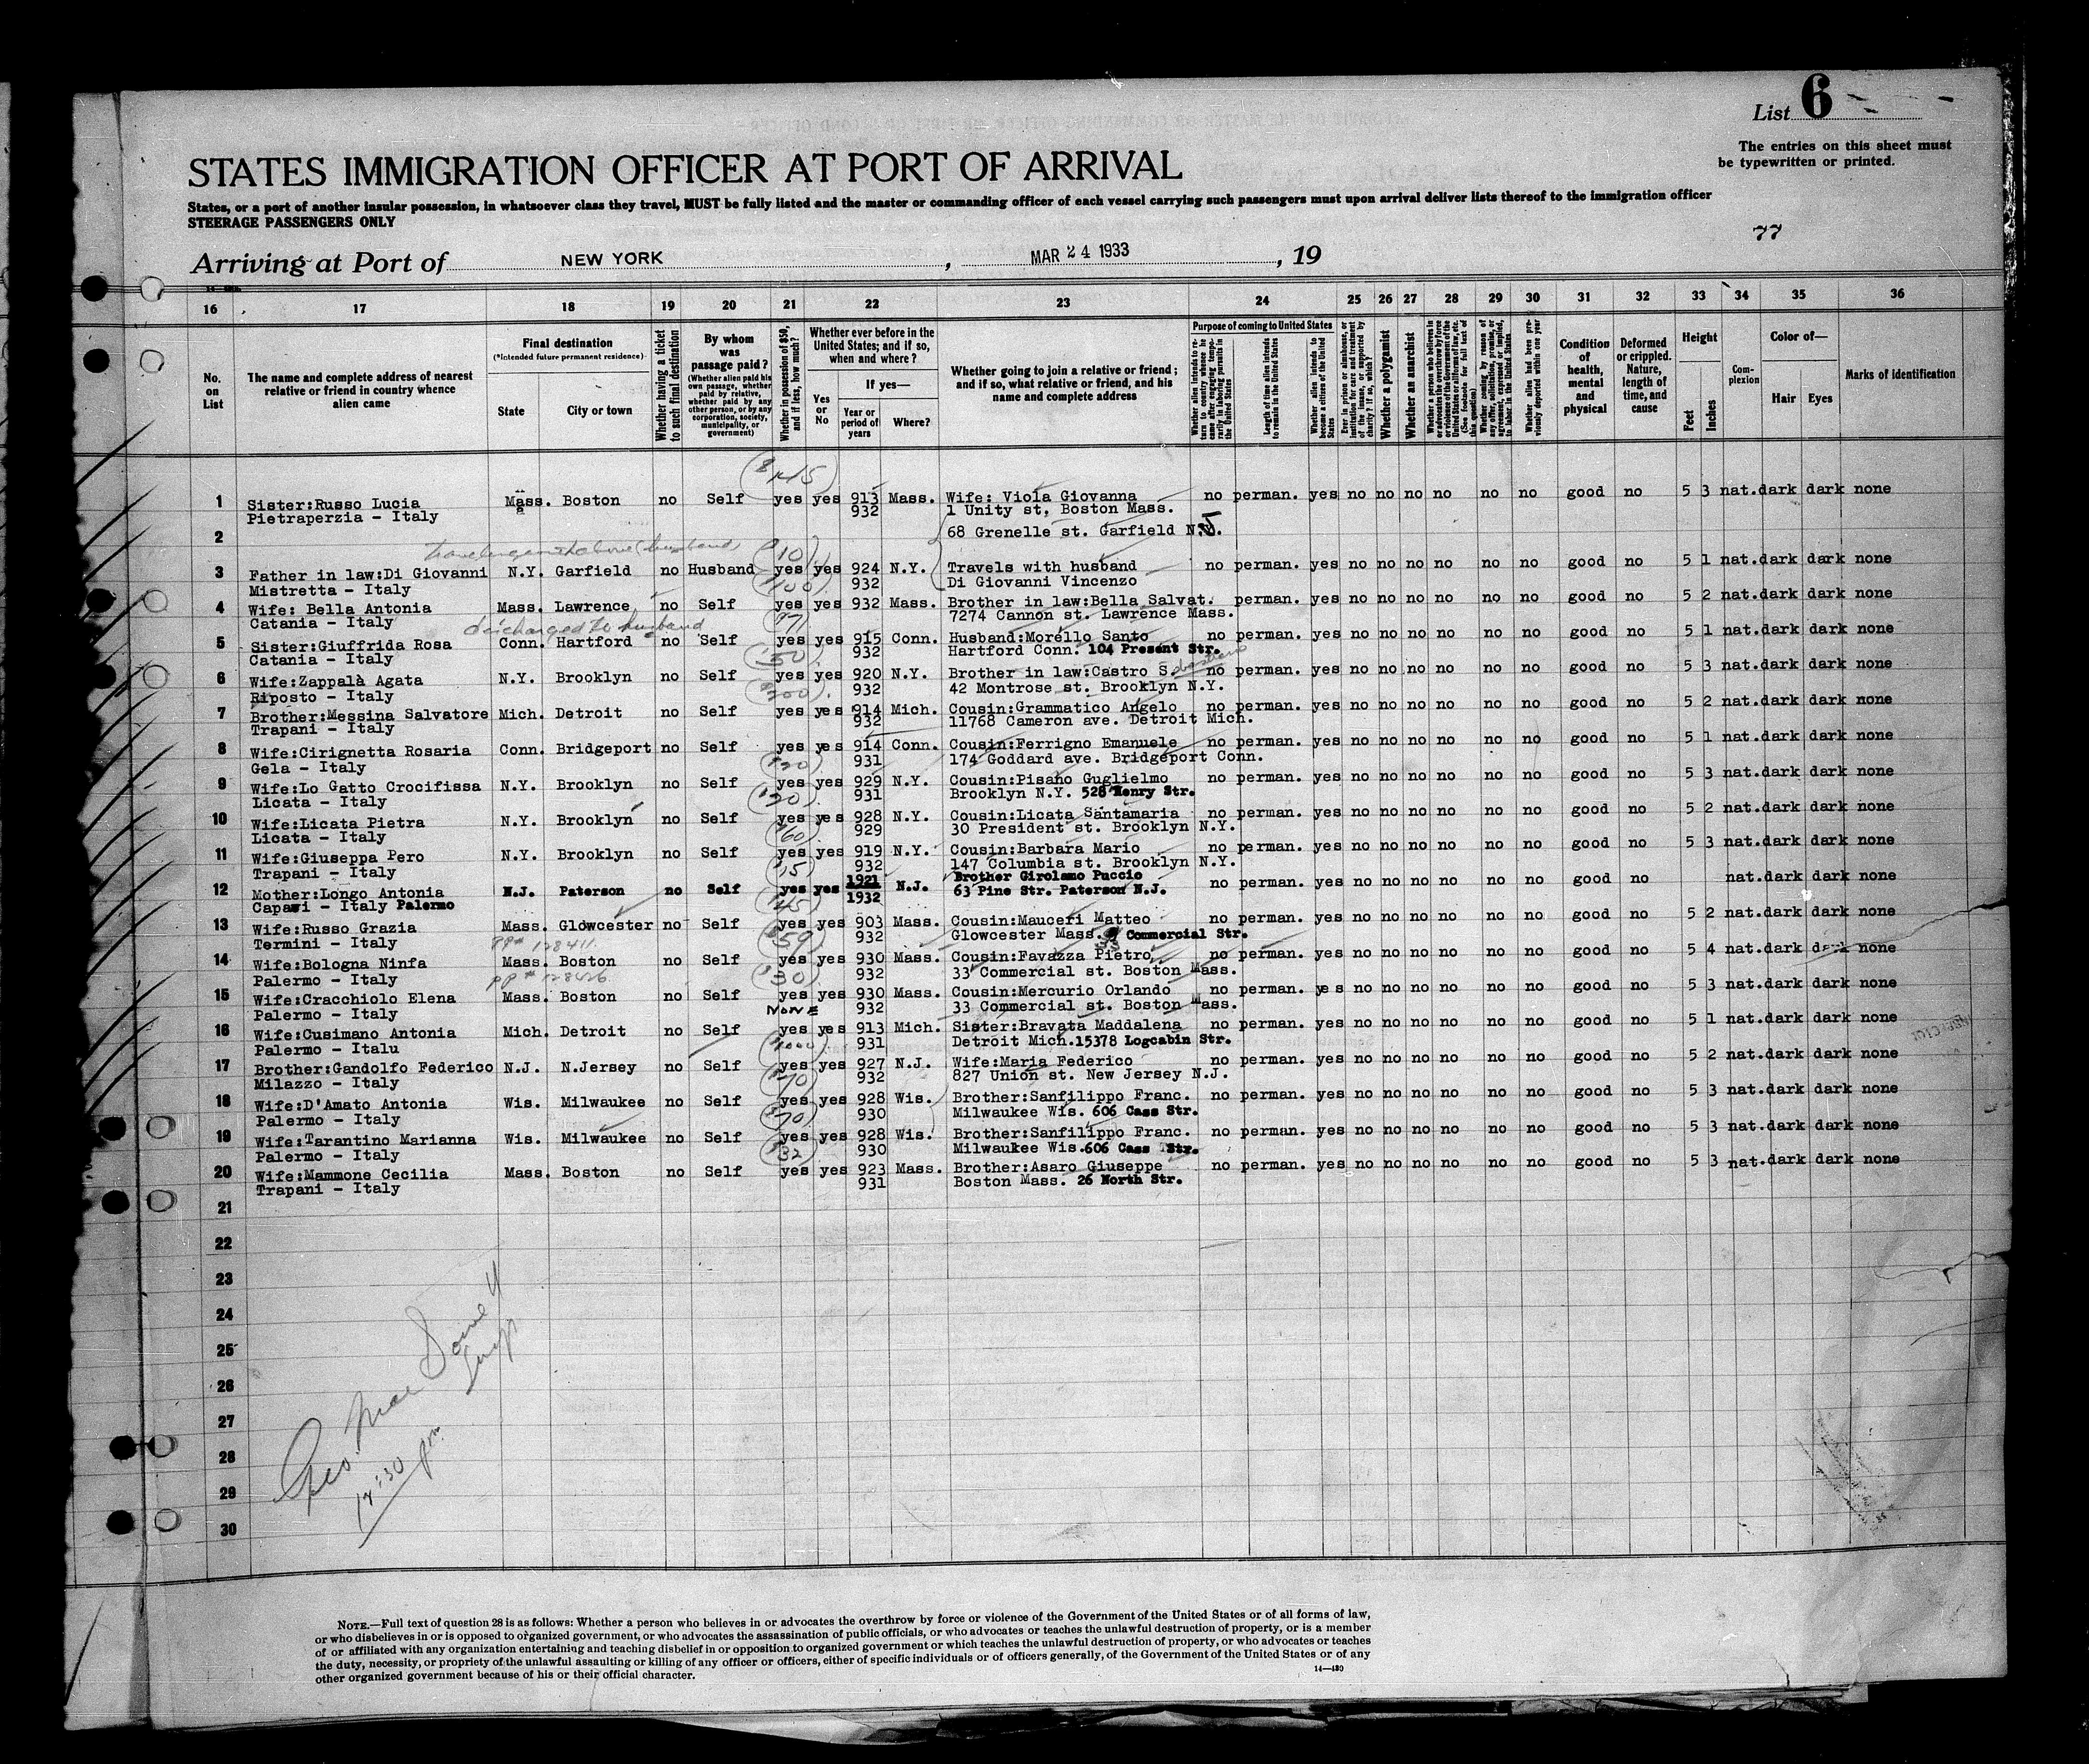 List 6
The entries on this sheet must
be typewritten or printed.
STATES IMMIGRATION OFFICER AT PORT OF ARRIVAL
States, or a port of another insular possession, in whatsoever class they travel, MUST be fully listed and the master or commanding officer of each vessel carrying such passengers must upon arrival deliver lists thereof to the immigration officer
STEERAGE PASSENGERS ONLY
77
Arriving at Port of NEW YORK, MAR 24 1933, 19
16 17 18 19 20 21 22 23 24 25 26 27 28 29 30 31 32 33 34 35 36
No. on List
The name and complete address of nearest relative or friend in country whence alien came
Final destination
(*Intended future permanent residence)
State City or town
Whether having a ticket to such final destination
By whom was passage paid?
(Whether alien paid his own passage, whether paid by relative, whether paid by any other person, or by any corporation, society, municipality, or government)
Whether in possession of $50, and if less, how much?
Whether ever before in the United States; and if so, when and where?
Yes or No
If yes—
Year or period of years Where?
Whether going to join a relative or friend; and if so, what relative or friend, and his name and complete address
Purpose of coming to United States
Whether alien intends to return to country whence he came after engaging temporarily in laboring pursuits in the United States
Length of time alien intends to remain in the United States
Whether alien intends to become a citizen of the United States
Ever in prison or almshouse, or institution for care and treatment of the insane, or supported by charity? If so, which?
Whether a polygamist
Whether an anarchist
Whether a person who believes in or advocates the overthrow by force or violence of the Government of the United States or all forms of law, etc. (See footnote for full text of this question)
Whether coming by reason of any offer, solicitation, promise, or agreement, expressed or implied, to labor in the United States
Whether alien had been previously deported within one year
Condition of health, mental and physical
Deformed or crippled. Nature, length of time, and cause
Height
Feet Inches
Complexion
Color of—
Hair Eyes
Marks of identification
1 Sister:Russo Lucia Mass. Boston no Self yes yes 913 Mass. Wife: Viola Giovanna no perman. yes no no no no no no good no 5 3 nat. dark dark none
Pietraperzia - Italy 932 1 Unity st, Boston Mass.
2 68 Grenelle st. Garfield N.J.
3 Father in law:Di Giovanni N.Y. Garfield no Husband yes yes 924 N.Y. Travels with husband no perman. yes no no no no no no good no 5 1 nat. dark dark none
Mistretta - Italy 932 Di Giovanni Vincenzo
4 Wife: Bella Antonia Mass. Lawrence no Self yes yes 932 Mass. Brother in law:Bella Salvat. perman. yes no no no no no no good no 5 2 nat. dark dark none
Catania - Italy 7274 Cannon st. Lawrence Mass.
discharged to husband
5 Sister:Giuffrida Rosa Conn. Hartford no Self yes yes 915 Conn. Husband:Morello Santo no perman. yes no no no no no no good no 5 1 nat. dark dark none
Catania - Italy 932 Hartford Conn. 104 Present Str.
6 Wife:Zappalà Agata N.Y. Brooklyn no Self yes yes 920 N.Y. Brother in law:Castro S. no perman. yes no no no no no no good no 5 3 nat. dark dark none
Riposto - Italy 932 42 Montrose st. Brooklyn N.Y.
7 Brother:Messina Salvatore Mich. Detroit no Self yes yes 914 Mich. Cousin:Grammatico Angelo no perman. yes no no no no no no good no 5 2 nat. dark dark none
Trapani - Italy 932 11768 Cameron ave. Detroit Mich.
8 Wife:Cirignetta Rosaria Conn. Bridgeport no Self yes yes 914 Conn. Cousin:Ferrigno Emanuele no perman. yes no no no no no no good no 5 1 nat. dark dark none
Gela - Italy 931 174 Goddard ave. Bridgeport Conn.
9 Wife:Lo Gatto Crocifissa N.Y. Brooklyn no Self yes yes 929 N.Y. Cousin:Pisano Guglielmo no perman. yes no no no no no no good no 5 3 nat. dark dark none
Licata - Italy 931 Brooklyn N.Y. 528 Henry Str.
10 Wife:Licata Pietra N.Y. Brooklyn no Self yes yes 928 N.Y. Cousin:Licata Santamaria no perman. yes no no no no no no good no 5 2 nat. dark dark none
Licata - Italy 929 30 President st. Brooklyn N.Y.
11 Wife:Giuseppa Pero N.Y. Brooklyn no Self yes yes 919 N.Y. Cousin:Barbara Mario no perman. yes no no no no no no good no 5 3 nat. dark dark none
Trapani - Italy 932 147 Columbia st. Brooklyn N.Y.
12 Mother:Longo Antonia N.J. Paterson no Self yes yes 1921 N.J. Brother Girolamo Puccio no perman. yes no no no no no no good no nat. dark dark none
Capaci - Italy Palermo 1932 63 Pine Str. Paterson N.J.
13 Wife:Russo Grazia Mass. Glowcester no Self yes yes 903 Mass. Cousin:Mauceri Matteo no perman. yes no no no no no no good no 5 2 nat. dark dark none
Termini - Italy 932 Glowcester Mass. Commercial Str.
PP# 128411
14 Wife:Bologna Ninfa Mass. Boston no Self yes yes 930 Mass. Cousin:Favazza Pietro, no perman. yes no no no no no no good no 5 4 nat. dark dark none
Palermo - Italy 932 33 Commercial st. Boston Mass.
PP# 128426
15 Wife:Cracchiolo Elena Mass. Boston no Self yes yes 930 Mass. Cousin:Mercurio Orlando no perman. yes no no no no no no good no 5 3 nat. dark dark none
Palermo - Italy NONE 932 33 Commercial st. Boston Mass.
16 Wife:Cusimano Antonia Mich. Detroit no Self yes yes 913 Mich. Sister:Bravata Maddalena no perman. yes no no no no no no good no 5 1 nat. dark dark none
Palermo - Italu 931 Detroit Mich. 15378 Logcabin Str.
17 Brother:Gandolfo Federico N.J. N.Jersey no Self yes yes 927 N.J. Wife:Maria Federico no perman. yes no no no no no no good no 5 2 nat. dark dark none
Milazzo - Italy 932 827 Union st. New Jersey N.J.
18 Wife:D'Amato Antonia Wis. Milwaukee no Self yes yes 928 Wis. Brother:Sanfilippo Franc. no perman. yes no no no no no no good no 5 3 nat. dark dark none
Palermo - Italy 930 Milwaukee Wis. 606 Cass Str.
19 Wife:Tarantino Marianna Wis. Milwaukee no Self yes yes 928 Wis. Brother:Sanfilippo Franc. no perman. yes no no no no no no good no 5 3 nat. dark dark none
Palermo - Italy 930 Milwaukee Wis. 606 Cass Str.
20 Wife:Mammone Cecilia Mass. Boston no Self yes yes 923 Mass. Brother:Asaro Giuseppe no perman. yes no no no no no no good no 5 3 nat. dark dark none
Trapani - Italy 931 Boston Mass. 26 North Str.
21
22
23
24
25
26
27
28
29
30
Geo. Mac Dowell
Insp
12:30 pm
NOTE.—Full text of question 28 is as follows: Whether a person who believes in or advocates the overthrow by force or violence of the Government of the United States or of all forms of law,
or who disbelieves in or is opposed to organized government, or who advocates the assassination of public officials, or who advocates or teaches the unlawful destruction of property, or is a member
of or affiliated with any organization entertaining and teaching disbelief in or opposition to organized government or which teaches the unlawful destruction of property, or who advocates or teaches
the duty, necessity, or propriety of the unlawful assaulting or killing of any officer or officers, either of specific individuals or of officers generally, of the Government of the United States or of any
other organized government because of his or their official character.
14—430